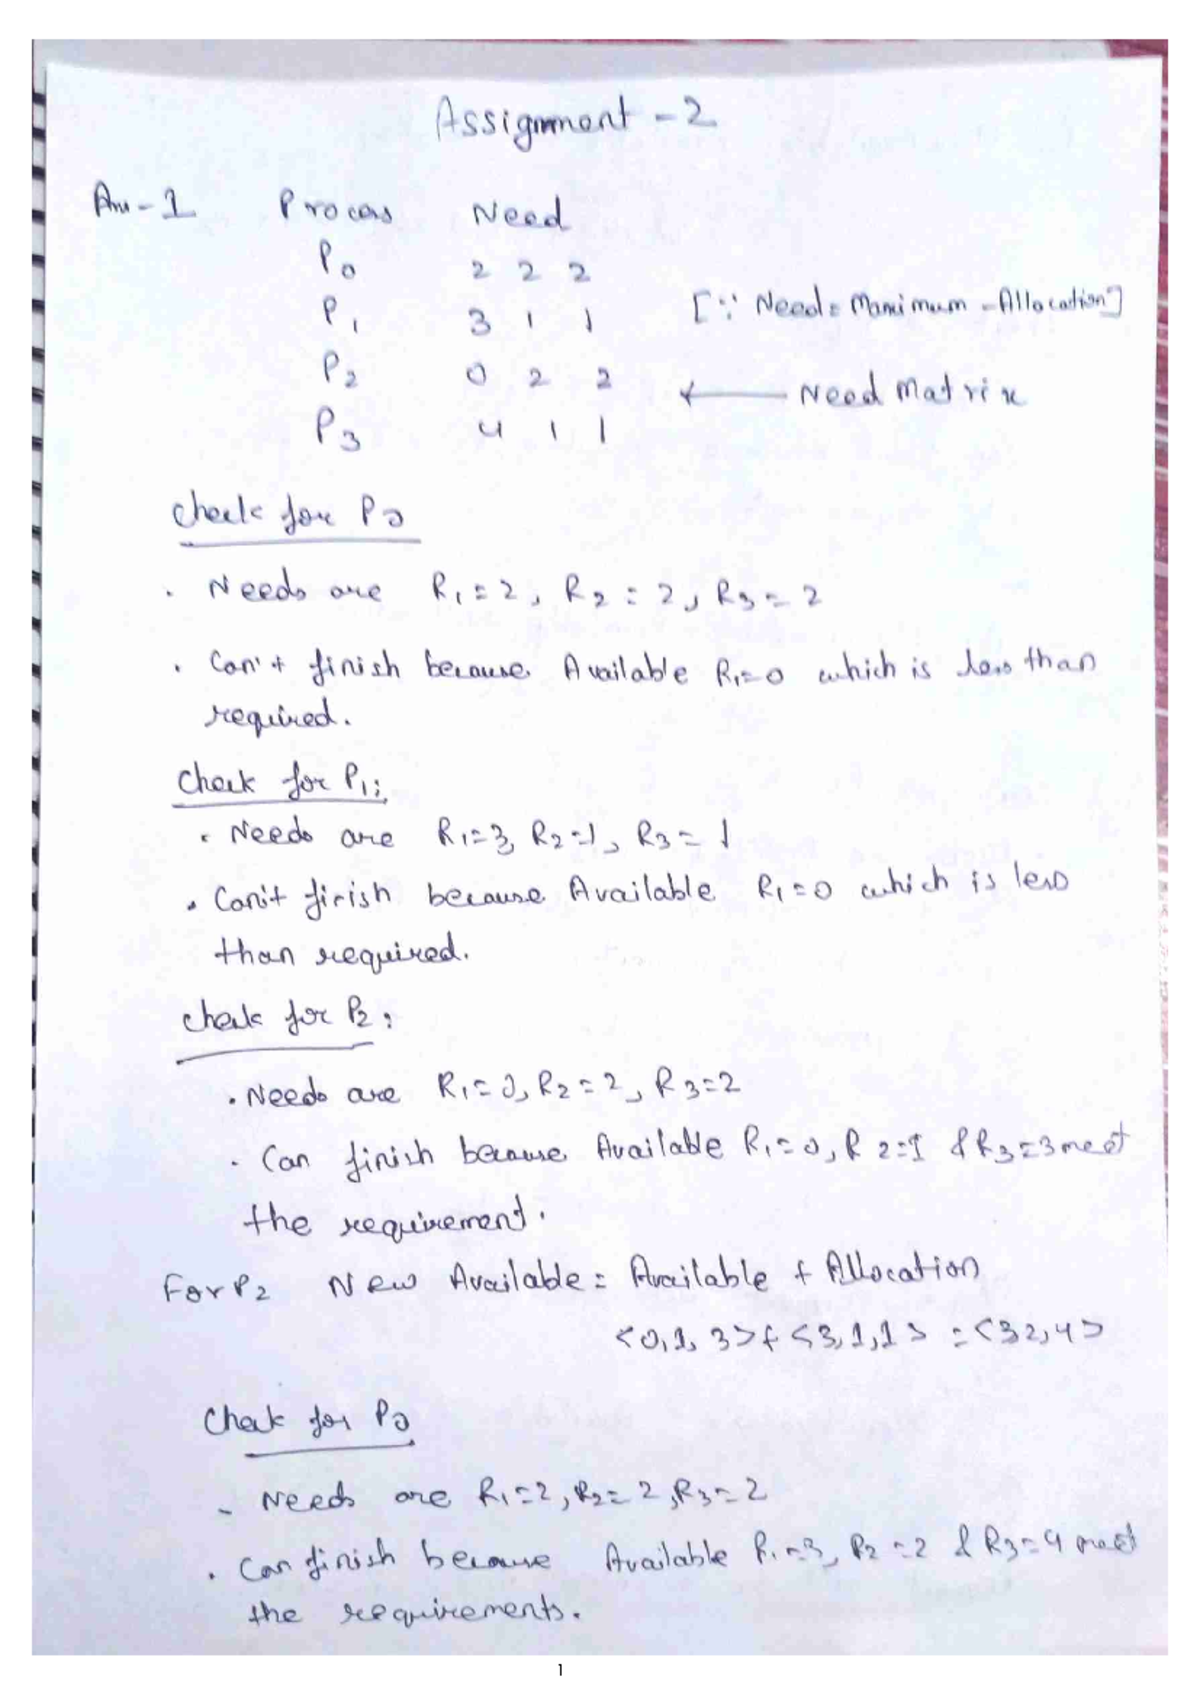 Assignment - 2
Ans - 1 Process Need
P0 2 2 2
P1 3 1 1 [∵ Need = Maximum - Allocation]
P2 0 2 2 ← Need Matrix
P3 4 1 1
Check for P0
. Needs are R1 = 2, R2 = 2, R3 = 2
. Can't finish because Available R1=0 which is less than
required.
Check for P1:
. Needs are R1=3, R2=1, R3=1
. Can't finish because Available R1=0 which is less
than required.
Check for P2:
. Needs are R1=0, R2=2, R3=2
. Can finish because Available R1=0, R2=1 & R3=3 meet
the requirement.
For P2 New Available = Available + Allocation
<0,1,3> + <3,1,1> = <3 2,4>
Check for P0
- Needs are R1=2, R2=2, R3=2
. Can finish because Available R1=3, R2=2 & R3=4 meet
the requirements.
1